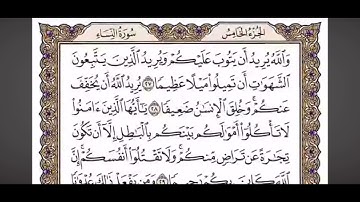 الجزء الخامس
سورة النساء
وَٱللَّهُ يُرِيدُ أَن يَتُوبَ عَلَيْكُمْ وَيُرِيدُ ٱلَّذِينَ يَتَّبِعُونَ
ٱلشَّهَوَٰتِ أَن تَمِيلُوا۟ مَيْلًا عَظِيمًا ٢٧ يُرِيدُ ٱللَّهُ أَن يُخَفِّفَ
عَنكُمْ ۚ وَخُلِقَ ٱلْإِنسَٰنُ ضَعِيفًا ٢٨ يَٰٓأَيُّهَا ٱلَّذِينَ ءَامَنُوا۟
لَا تَأْكُلُوٓا۟ أَمْوَٰلَكُم بَيْنَكُم بِٱلْبَٰطِلِ إِلَّآ أَن تَكُونَ
تِجَٰرَةً عَن تَرَاضٍ مِّنكُمْ ۚ وَلَا تَقْتُلُوٓا۟ أَنفُسَكُمْ ۚ إِنَّ
ٱللَّهَ كَانَ بِكُمْ رَحِيمًا ٢٩ وَمَن يَفْعَلْ ذَٰلِكَ عُدْوَٰنًا